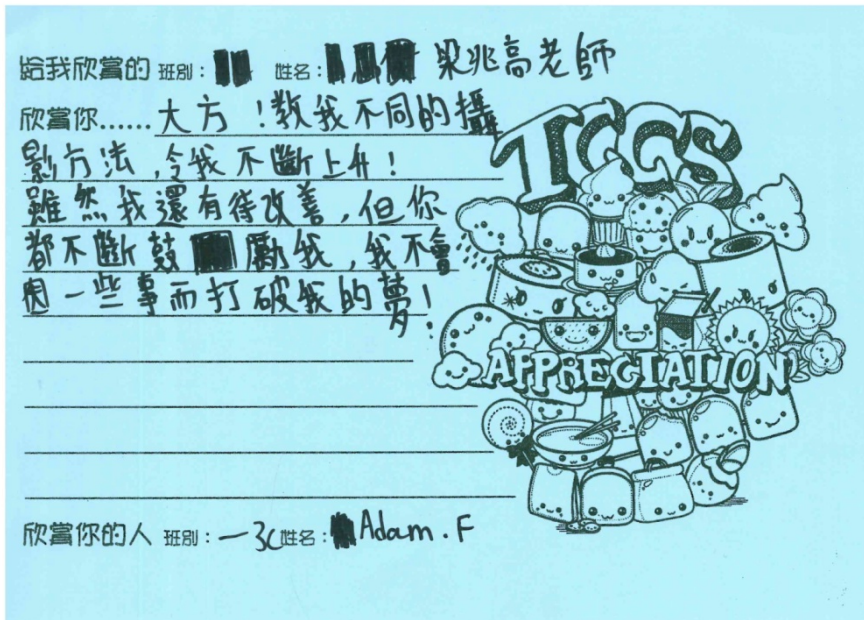 給我欣賞的 班別： 姓名： 梁兆高老師
欣賞你......大方！教我不同的攝
影方法，令我不斷上升！
雖然我還有待改善，但你
都不斷鼓勵我，我不會
因一些事而打破我的夢！
TCGS
APPRECIATION
欣賞你的人 班別：一3C 姓名：Adam.F